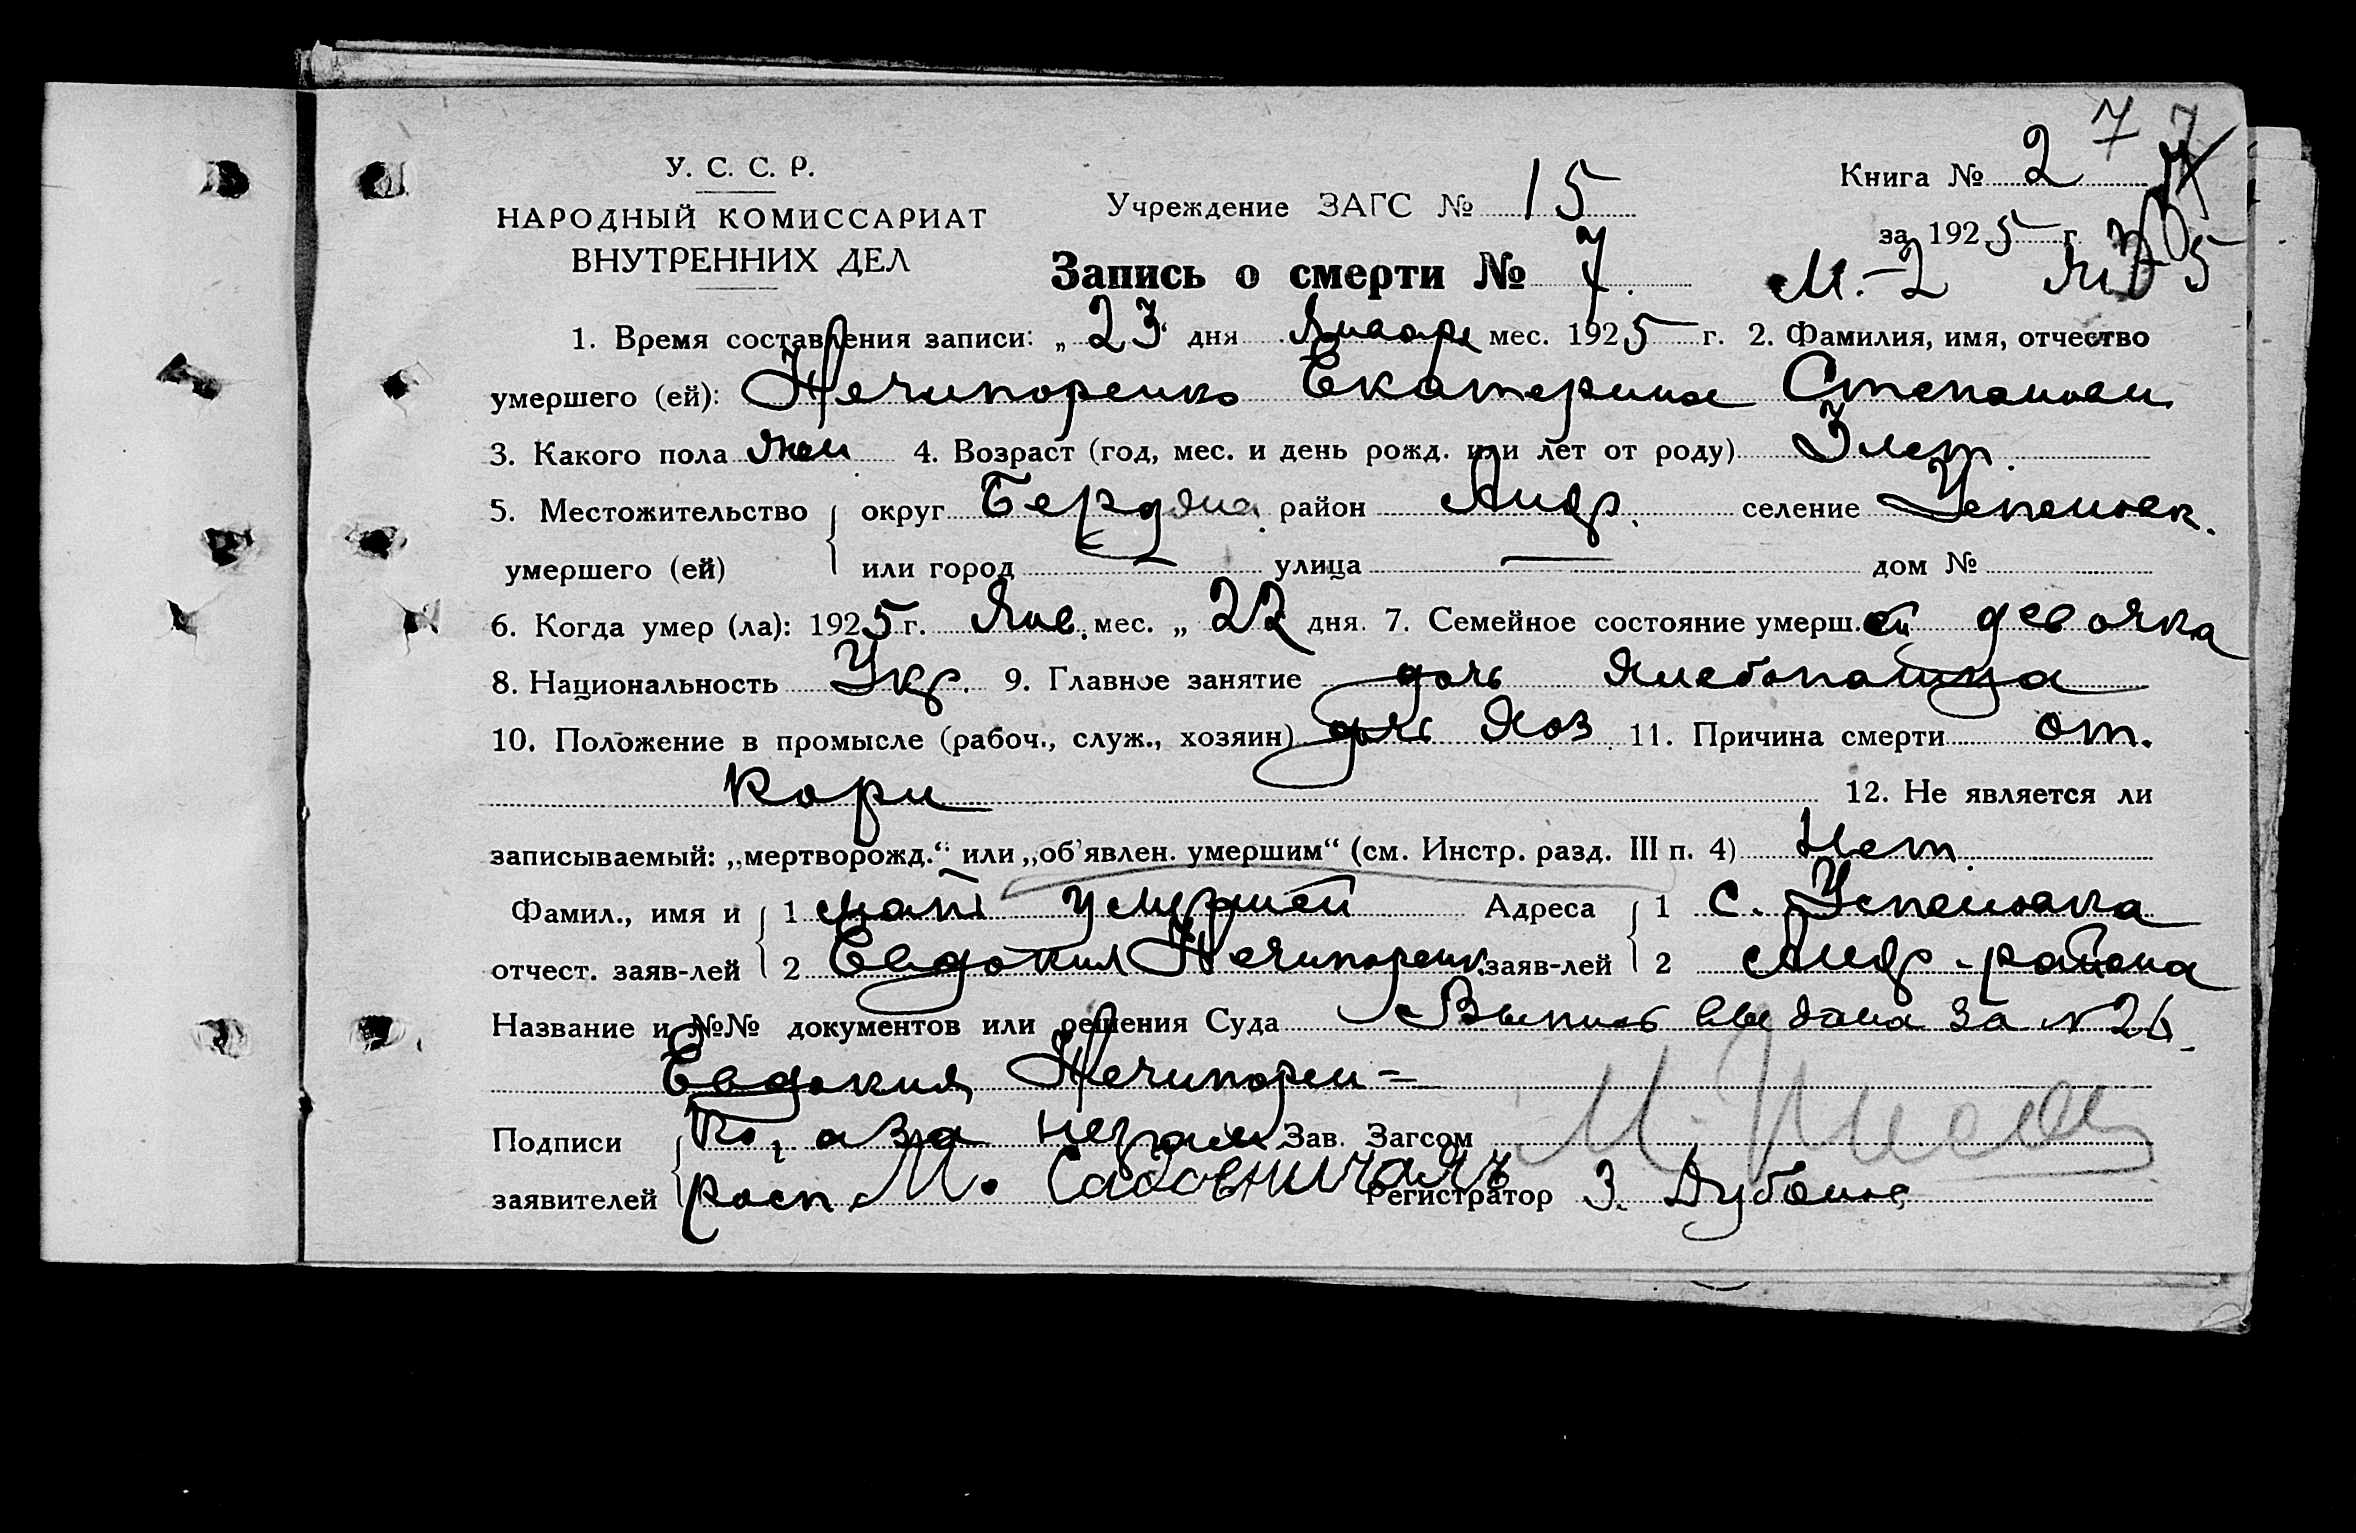 7 7
У. С. С. Р.
Книга № 2
НАРОДНЫЙ КОМИССАРИАТ
Учреждение ЗАГС № 15
за 1925 г.
ВНУТРЕННИХ ДЕЛ
Запись о смерти № 7.
М.-2
1. Время составления записи: „23" дня Января мес. 1925 г. 2. Фамилия, имя, отчество
умершего (ей): Нечипоренко Екатерина Степанов.
3. Какого пола жен 4. Возраст (год, мес. и день рожд. или лет от роду) 3 лет.
5. Местожительство округ Бердянс. район Андр. селение Успеновк.
умершего (ей) или город — улица — дом №
6. Когда умер (ла): 1925 г. Янв. мес. „22 дня. 7. Семейное состояние умерш.ей девочка
8. Национальность Укр. 9. Главное занятие дочь хлебопашца
10. Положение в промысле (рабоч., служ., хозяин) дочь хоз 11. Причина смерти от.
кори 12. Не является ли
записываемый: „мертворожд." или „об'явлен. умершим" (см. Инстр. разд. III п. 4) Нет.
Фамил., имя и 1 мать умершей Адреса 1 с. Успеновка
отчест. заяв-лей 2 Евдокия Нечипоренк. заяв-лей 2 Андр. района
Название и №№ документов или решения Суда Выпись выдана за № 26
Евдокия Нечипорен-
Подписи ко, а за неграм Зав. Загсом
заявителей расп. М. Садовничая Регистратор З.